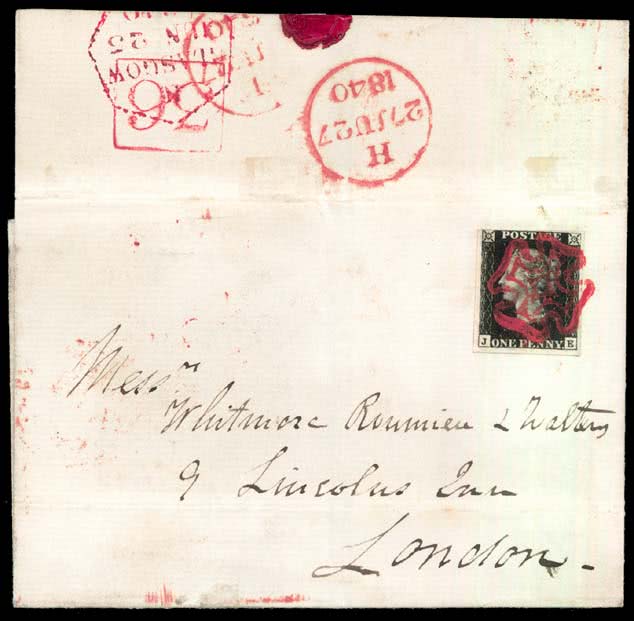 GLASGOW
UN 25
H
27JU27
1840
POSTAGE
J ONE PENNY E
Messrs
Whitmore Roumieu & Walters
9 Lincolns Inn
London -